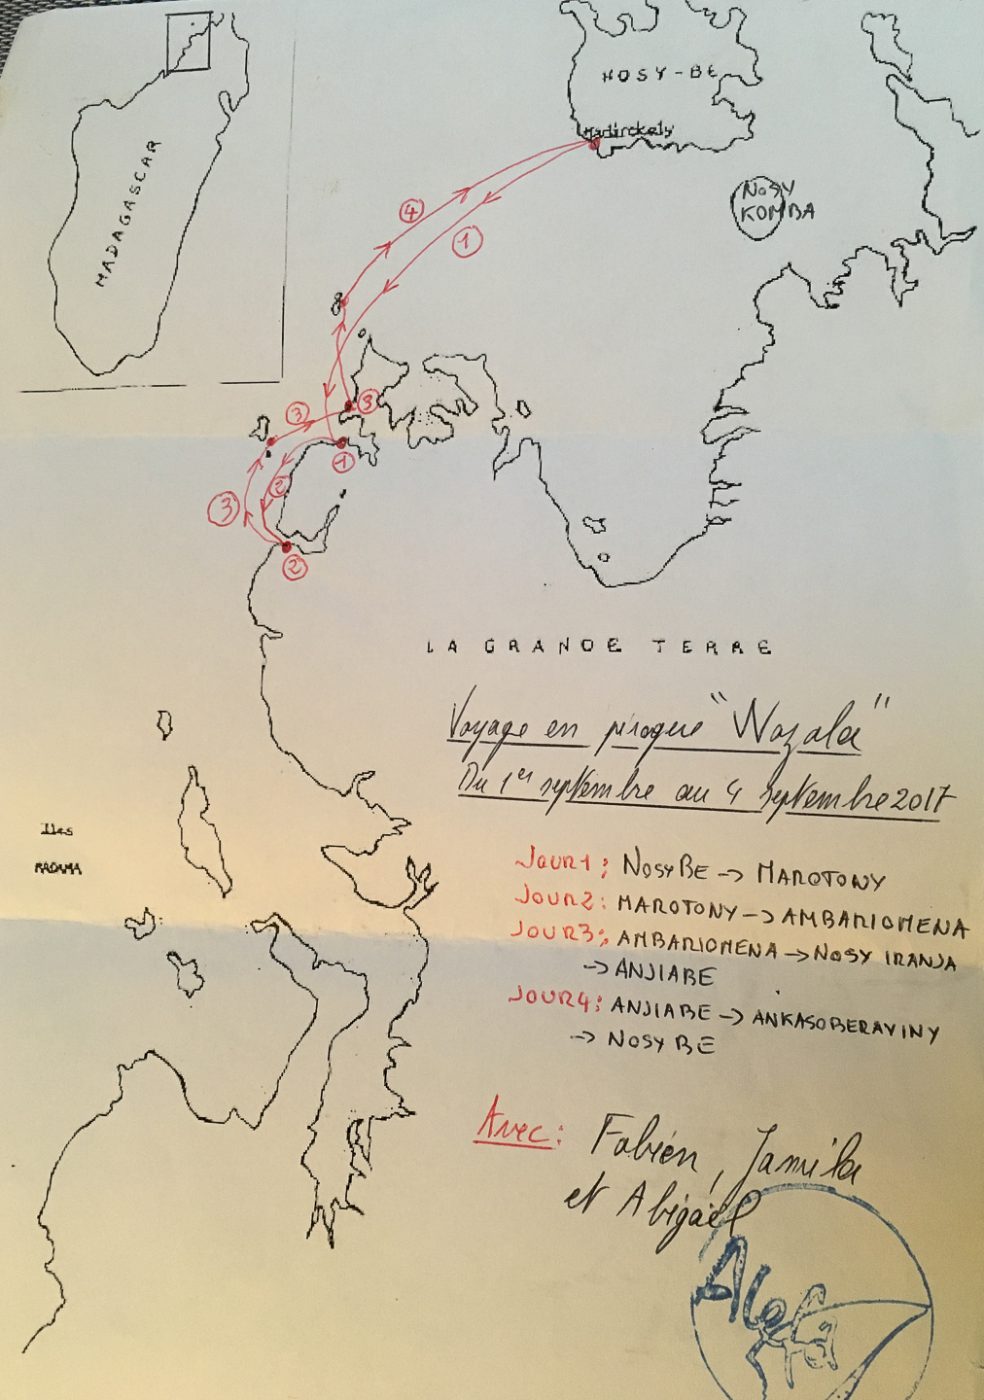 NOSY-BE
Madirokely
NOSY
KOMBA
MADAGASCAR
4
1
3
3
1
2
3
2
LA GRANDE TERRE
Voyage en pirogue "Wazala"
Du 1er septembre au 4 septembre 2017
Iles
RADAMA
JOUR1: NOSY BE -> MAROTONY
JOUR2: MAROTONY -> AMBARIOMENA
JOUR3: AMBARIOMENA -> NOSY IRANJA
-> ANJIABE
JOUR4: ANJIABE -> ANKASOBERAVINY
-> NOSY BE
Avec: Fabien, Jamila
et Abigaël